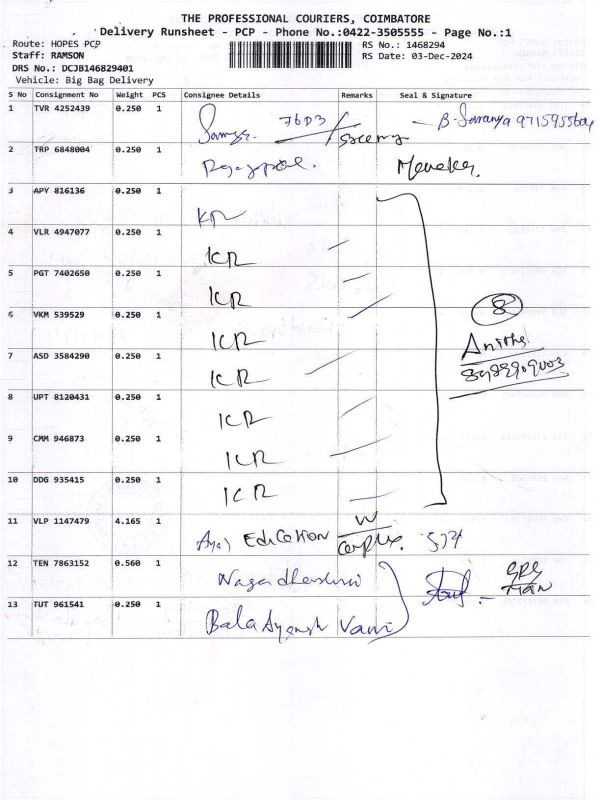 THE PROFESSIONAL COURIERS, COIMBATORE
Delivery Runsheet - PCP - Phone No.:0422-3505555 - Page No.:1
Route: HOPES PCP RS No.: 1468294
Staff: RAMSON RS Date: 03-Dec-2024
DRS No.: DCJB146829401
Vehicle: Big Bag Delivery
S No Consignment No Weight PCS Consignee Details Remarks Seal & Signature
1 TVR 4252439 0.250 1 B. Saranya
2 TRP 6848004 0.250 1
3 APY 816136 0.250 1 KR
4 VLR 4947077 0.250 1 ICR
5 PGT 7402650 0.250 1 ICR
6 VKM 539529 0.250 1 ICR
8
7 ASD 3584290 0.250 1 ICR
8 UPT 8120431 0.250 1 ICR
9 CMM 946873 0.250 1 ICR
10 DDG 935415 0.250 1 ICR
11 VLP 1147479 4.165 1 Education
12 TEN 7863152 0.560 1 Nagadharshini
13 TUT 961541 0.250 1 Bala